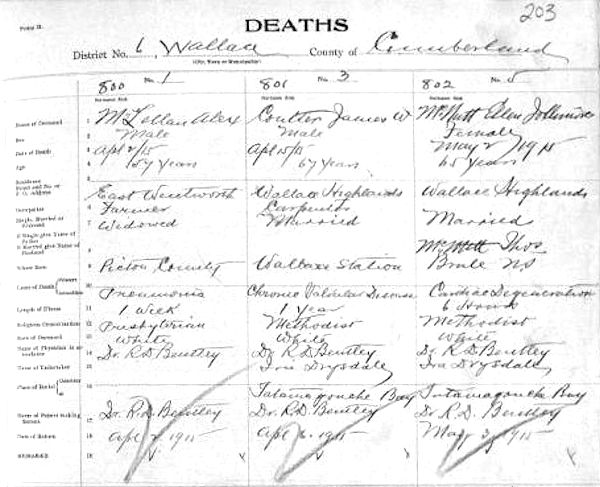 203
Form D.
DEATHS
District No. 6, Wallace County of Cumberland
(City, Town or Municipality)
800 No. 1 801 No. 3 802 No. 5
Name of Deceased 1 McLellan Alex Coulter James W McNutt Ellen Jollimore
Sex 2 Male Male Female
Date of Death 3 Apl 2/15 Apl 15/15 May 2/1915
Age 4 54 years 67 years 65 years
Residence
Street and No. or P. O. Address East Wentworth Wallace Highlands Wallace Highlands
Occupation Farmer Carpenter
Single, Married or Widowed 7 Widowed Married Married
If Single give Name of Father
If Married give Name of Husband McNutt Thos
Where Born 9 Pictou County Wallace Station Brule NS
Cause of Death Primary
Immediate Pneumonia Chronic Valvular Disease Cardiac Degeneration
Length of Illness 11 1 week 1 year 6 Hours
Religious Denomination 12 Presbyterian Methodist Methodist
Race of Deceased 13 White White White
Name of Physician in attendance 14 Dr. R D Bentley Dr R D Bentley Dr R D Bentley
Name of Undertaker 15 Ira Drysdale Ira Drysdale
Place of Burial Cemetery
16 Tatamagouche Bay Tatamagouche Bay
Name of Person making Return 17 Dr. R. D. Bentley Dr. R. D. Bentley Dr. R. D. Bentley
Date of Return 18 Apl 1915 Apl 1915 May 3, 1915
REMARKS